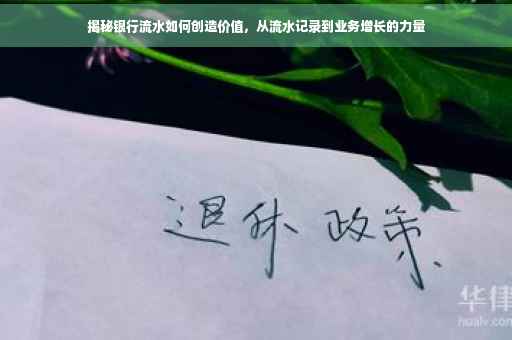 揭秘银行流水如何创造价值，从流水记录到业务增长的力量
退休 政策
华律
hualv.com